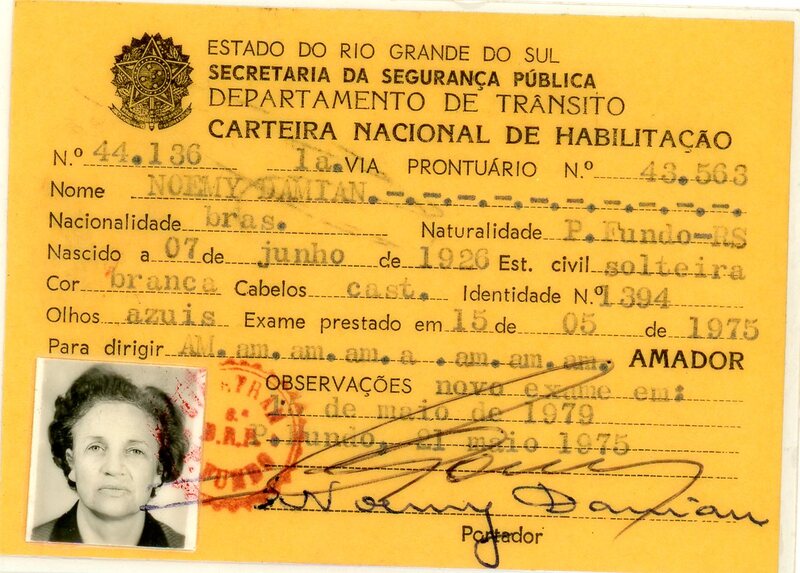 ESTADO DO RIO GRANDE DO SUL
SECRETARIA DA SEGURANÇA PÚBLICA
DEPARTAMENTO DE TRÂNSITO
CARTEIRA NACIONAL DE HABILITAÇÃO
N.º 44.136 1a. VIA PRONTUÁRIO N.º 43.563
Nome NOEMY DAMIAN.-.-.-.-.-.-.-.-.-.
Nacionalidade bras. Naturalidade P.Fundo-RS
Nascido a 07 de junho de 1926 Est. civil solteira
Cor branca Cabelos cast. Identidade N.º 1394
Olhos azuis Exame prestado em 15 de 05 de 1975
Para dirigir AM. am. am. am. a .am. am. am. AMADOR
OBSERVAÇÕES novo exame em:
15 de maio de 1979
P.Fundo, 21 maio 1975
FUNDO
Noemy Damian
Portador